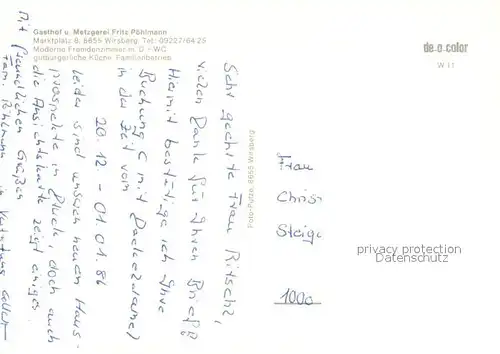 Gasthof u. Metzgerei Fritz Pöhlmann
Marktplatz 8, 8655 Wirsberg, Tel: 09227/6425
Moderne Fremdenzimmer m. D + WC
gutbürgerliche Küche, Familienbetrieb
de-o-color
W 11
Sehr geehrte Frau Ritschz,
vielen Dank für Ihren Brief.
Hiermit bestätige ich Ihre
Buchung (mit Dackeldame)
in der Zeit vom
20.12 - 01.01.86
Leider sind unsere neuen Haus-
prospekte in Druck, doch auch
die Ansichtskarte zeigt einiges
Mit freundlichen Grüßen
Fam. Pöhlmann in Vertretung
Foto-Putze, 8655 Wirsberg
Frau
Chris
Steig
1000
privacy protection
Datenschutz